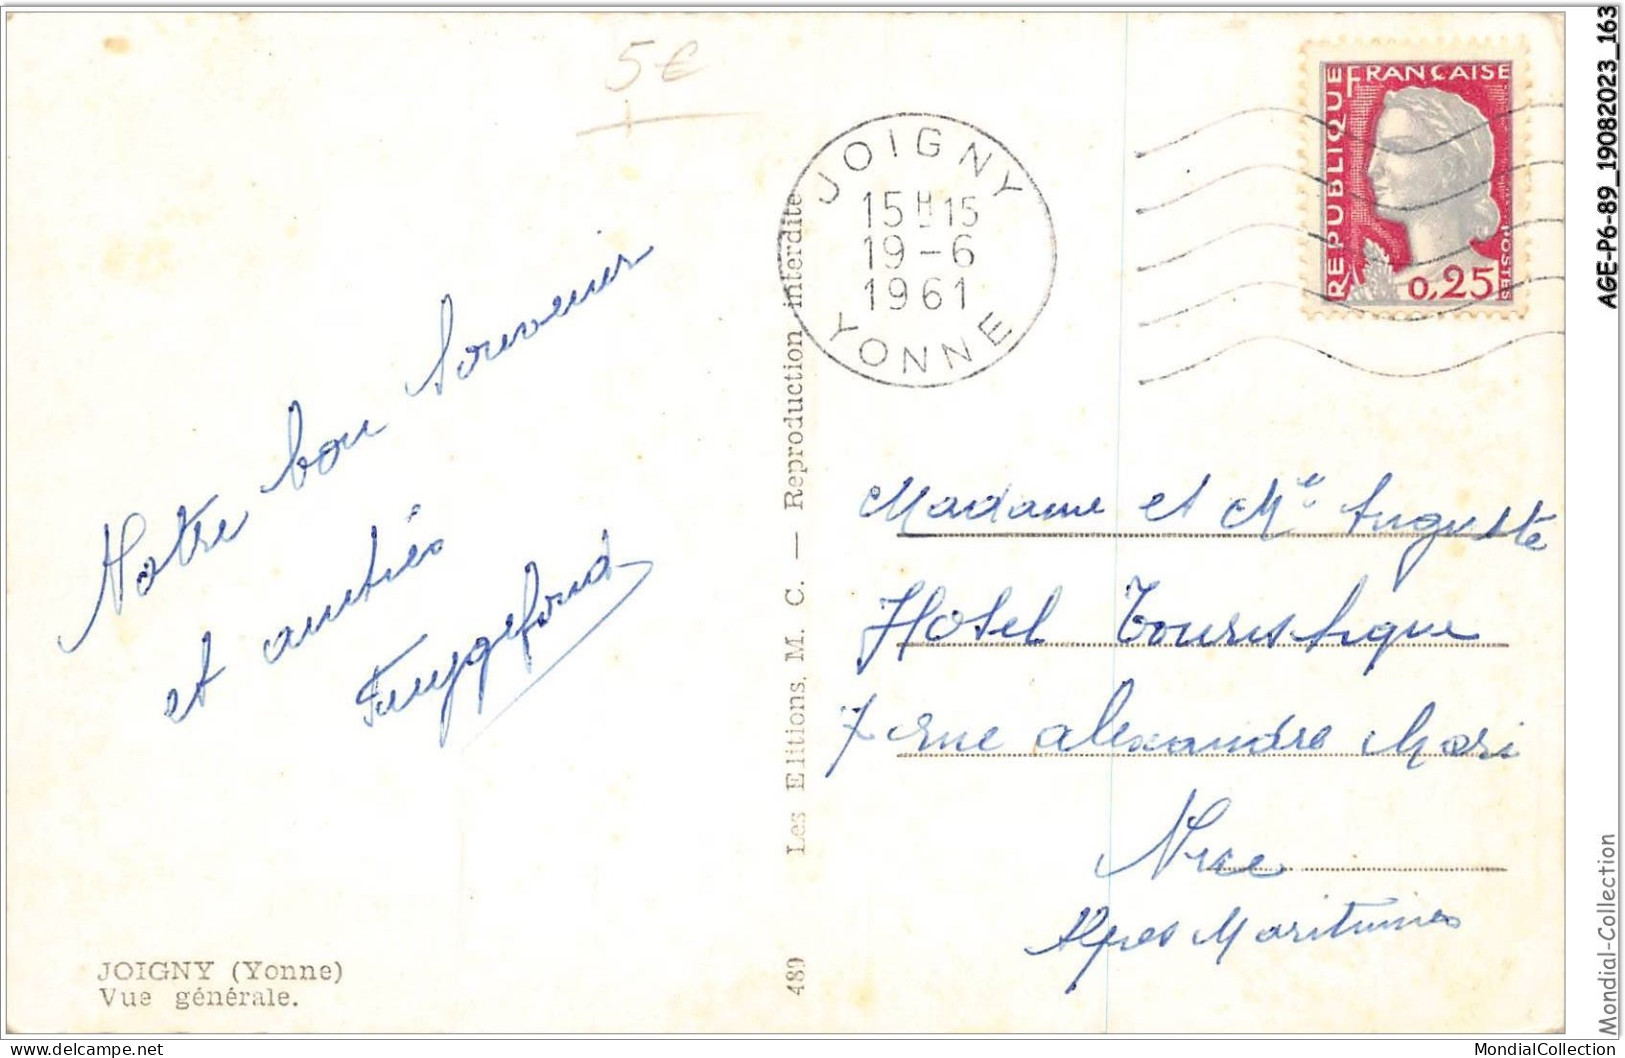 5€
Notre bon souvenir
et amitiés
JOIGNY (Yonne)
Vue générale.
489 Les Editions, M. C. — Reproduction interdite
JOIGNY
15H15
19-6
1961
YONNE
REPUBLIQUE FRANÇAISE
POSTES
0,25
Madame et Mr Auguste
Hôtel Touristique
7 rue Alexandre Mari
Nice
Alpes Maritimes
AGE-P6-89_19082023_163
Mondial-Collection
MondialCollection
delcampe.net